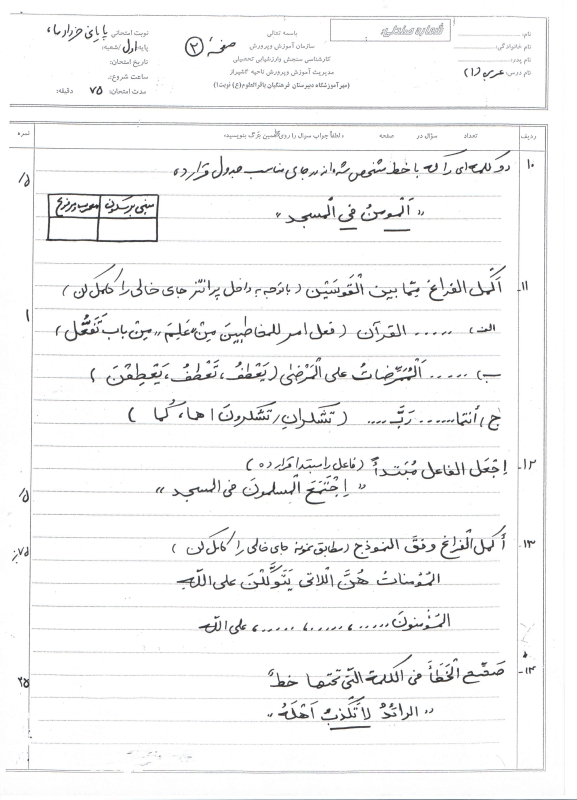 نام:
نام خانوادگی:
نام پدر:
نام درس: عربی (۱)
شماره صندلی:
باسمه تعالی
سازمان آموزش وپرورش
کارشناسی سنجش وارزشیابی تحصیلی
مدیریت آموزش وپرورش ناحیه ۴شیراز
(مهرآموزشگاه دبیرستان فرهنگیان باقرالعلوم(ع) نوبت۱)
صفحهٔ (۲)
نوبت امتحانی: پایانی خرداد ماه
پایه: اول /شعبه:
تاریخ امتحان:
ساعت شروع:
مدت امتحان: ۷۵ دقیقه:
ردیف تعداد سؤال در صفحه «لطفاً جواب سوال را روی همین برگ بنویسید» نمره
۱۰ دو کلمه‌ای را که با خط مشخص شده‌اند در جای مناسب جدول قرار ده ۵/
مبنی بر سکون معرب بر فرع
« اَلْمومنُ فِي الْمسجد »
۱۱- اَکْمِل الفراغَ مِمّا بین الْقَوْسَیْنِ ( باتوجه به داخل پرانتز جای خالی را کامل کن ) ۱
الف) ..... القرآن ( فعل امر للمخاطبینَ مِنْ «عَلِمَ» مِن باب تَفَعُّل )
ب) ..... اَلْمُمَرِّضاتُ علی الْمَرْضٰی ( یَعْطِفُ، تَعْطِفُ، یَعْطِفْنَ )
ج) أنتما ..... رَبَّ .... ( تشکرانِ، تشکرونَ / هما، کُما )
۱۲- اِجْعَل الفاعل مُبْتَدأً (فاعل را مبتدا قرار ده ) ۵/
« اِجْتَمَعَ الْمسلمونَ فی المسجد »
۱۳- أکمل الْفراغَ وفقَ النموذج (مطابق نمونه جای خالی را کامل کن ) ۷۵/
المؤمناتُ هُنَّ اللاتی یَتَوَکَّلْنَ علی اللّه
المؤمنونَ .....، .....، ..... علی اللّه
۱۴- صَحِّح الْخَطَأَ فی الکلمة الّتی تحتها خطٌّ ۲۵/
« الرائدُ لاٰتَکْذِبُ اَهْلَهُ »